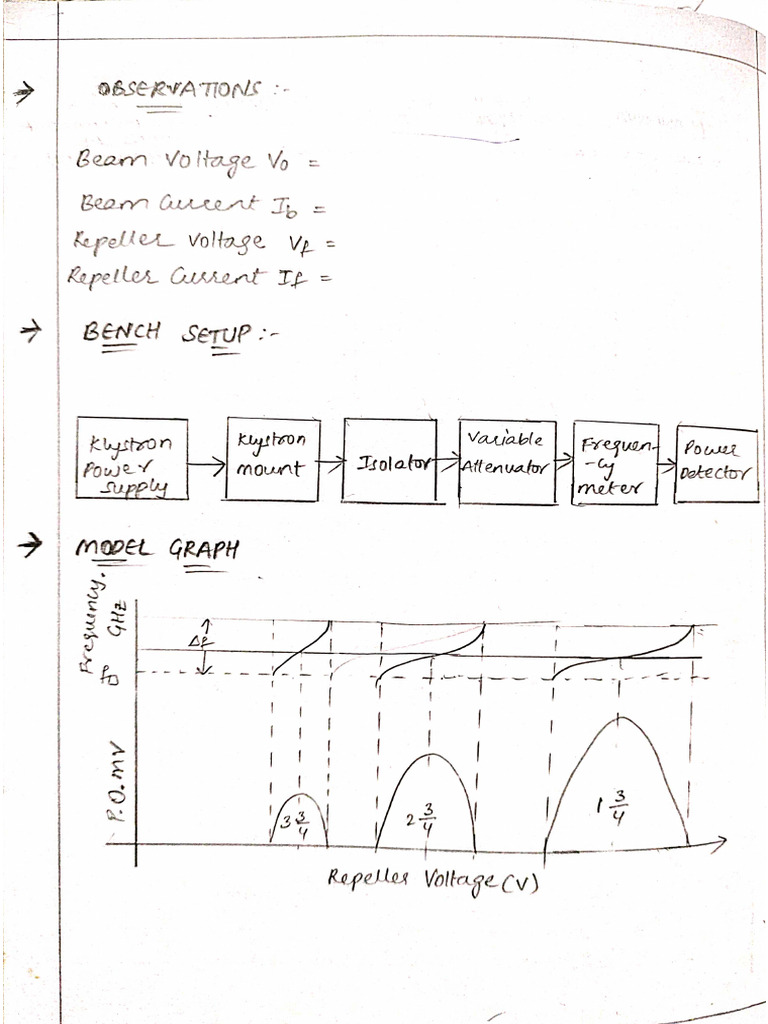 → OBSERVATIONS :-
Beam Voltage V₀ =
Beam Current I_b =
Repeller Voltage V_f =
Repeller Current I_f =
→ BENCH SETUP :-
Klystron
Power
Supply
Klystron
mount
Isolator
Variable
Attenuator
Frequen-
-cy
meter
Power
Detector
→ MODEL GRAPH
Frequency.
GHz
f₀
Δf
P.O. mV
3 3/4
2 3/4
1 3/4
Repeller Voltage (V)